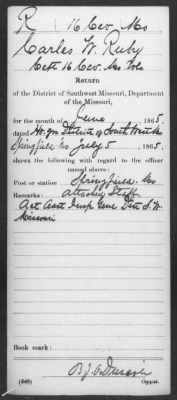 R | 16 Cav Mo
Carles W. Ruby
Capt 16 Cav. Mo Vols
Return
of the District of Southwest Missouri, Department
of the Missouri,
for the month of June, 1865,
dated Hd. Qrs District of South West Mo
Springfield Mo July 5, 1865.
shows the following with regard to the officer
named above:
Post or station Springfield Mo
Remarks: Attached Staff
Act. Asst Insp. Genl Dist S. W.
Missouri
Book mark:
(646)
Copyist.